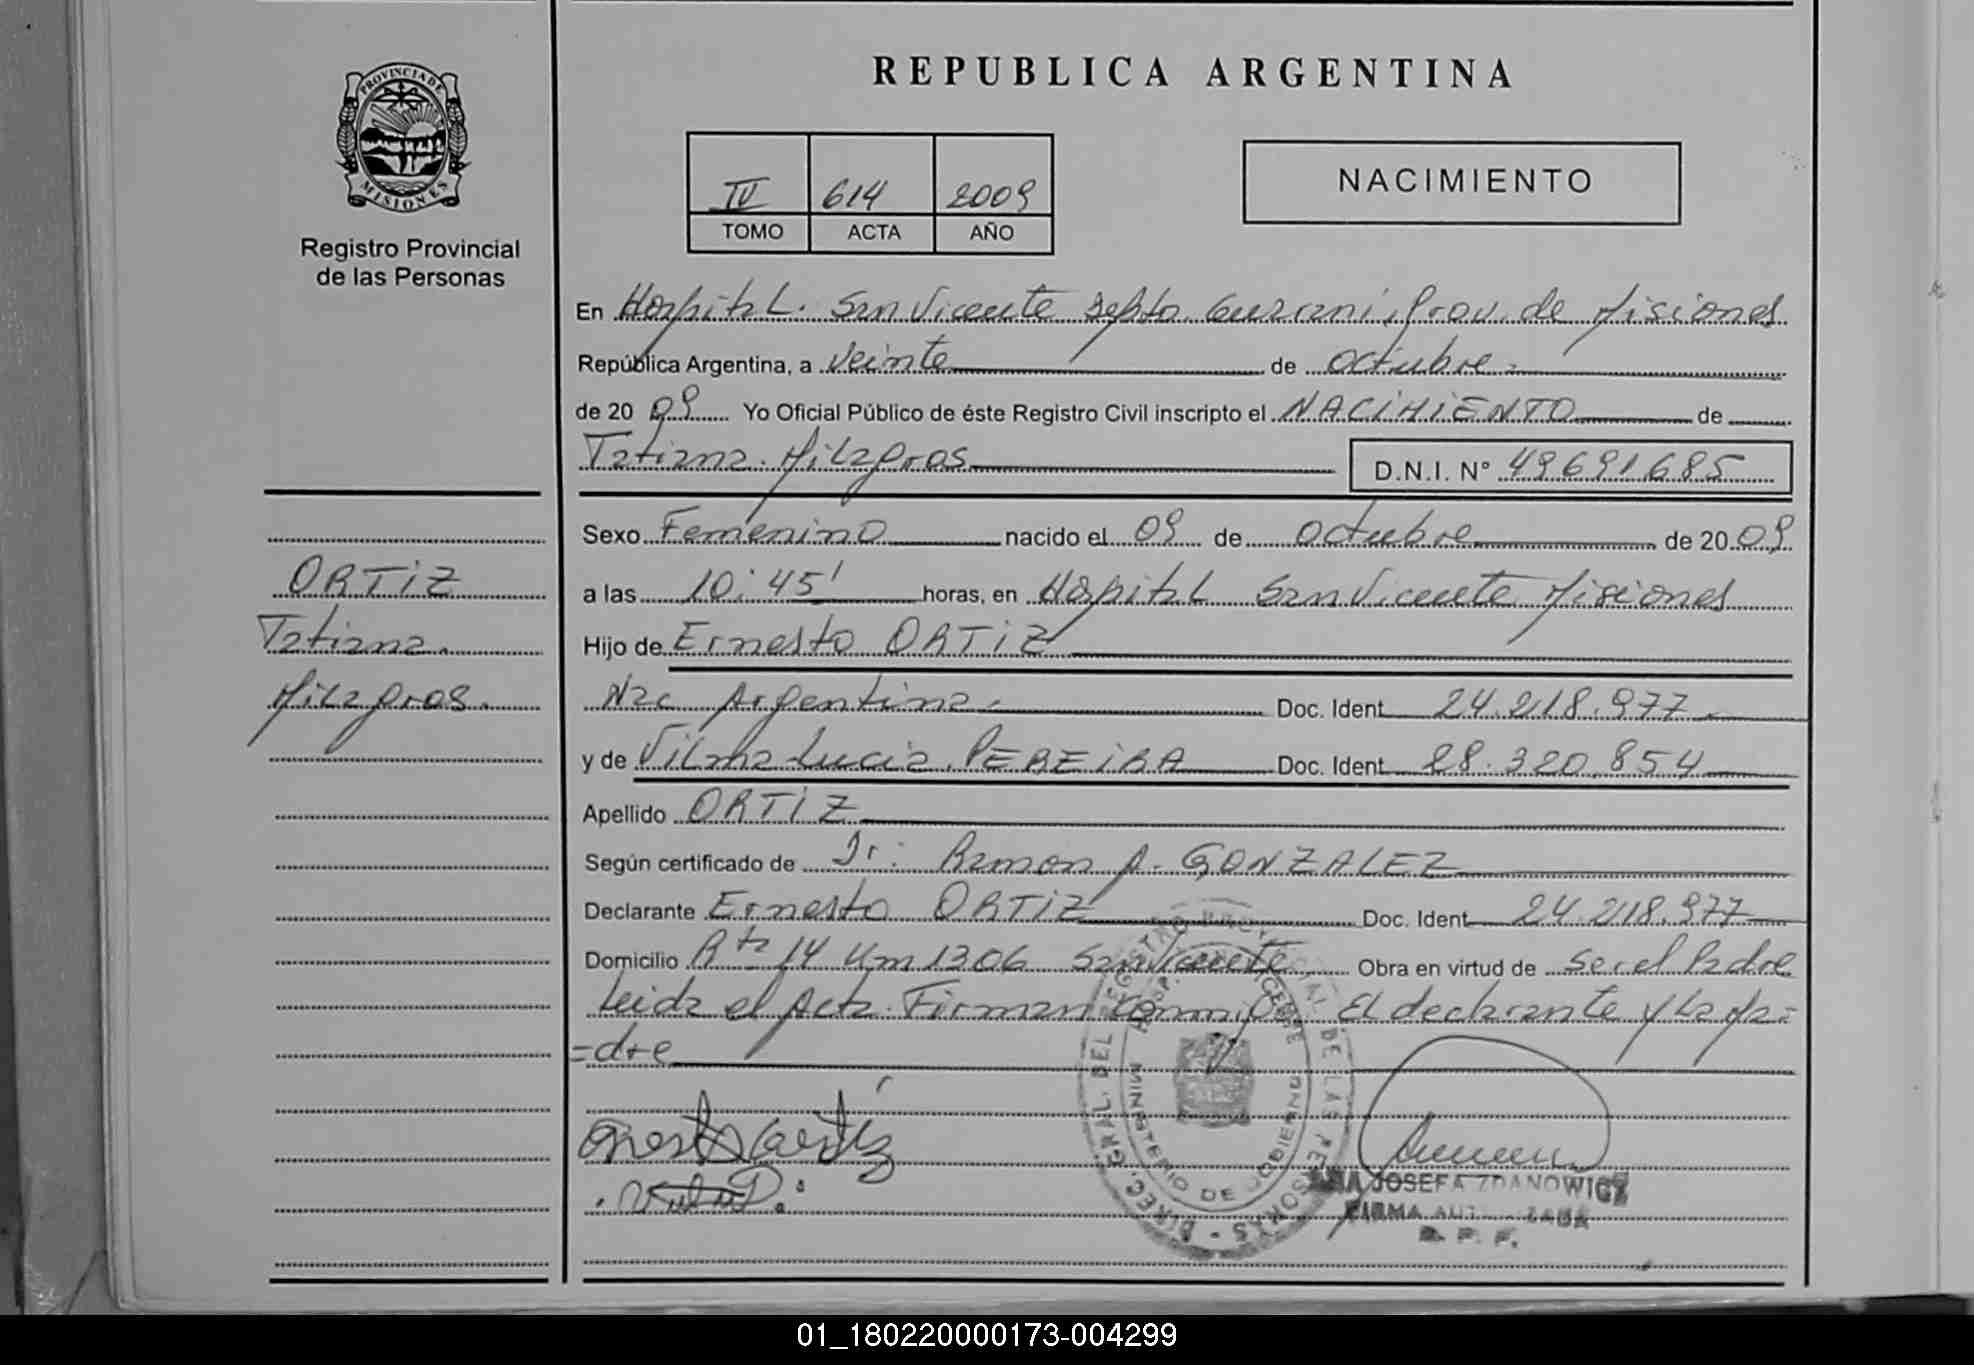 PROVINCIA DE
MISIONES
Registro Provincial
de las Personas
ORTIZ
Tatiana
Milagros.
REPUBLICA ARGENTINA
IV 614 2009
TOMO ACTA AÑO
NACIMIENTO
En Hospital. San Vicente Depto. Guarani, Prov. de Misiones
República Argentina, a veinte de octubre.
de 20 09 Yo Oficial Público de éste Registro Civil inscripto el NACIMIENTO de
Tatiana Milagros
D.N.I. N° 49691685
Sexo Femenino nacido el 09 de octubre de 20 09
a las 10:45' horas, en Hospital San Vicente Misiones
Hijo de Ernesto ORTIZ
Nac Argentina. Doc. Ident 24.218.977
y de Vilma Lucia PEREIRA Doc. Ident 28.320.854
Apellido ORTIZ
Según certificado de Dr: Ramon A. GONZALEZ
Declarante Ernesto ORTIZ Doc. Ident 24.218.977
Domicilio Rta 14 Km 1306 San Vicente Obra en virtud de ser el Padre
Leida el Acta. Firman conmigo El declarante y la ma=
=dre
DIREC. GRAL. DEL REGISTRO PROVINCIAL DE LAS PERSONAS
MINISTERIO DE GOBIERNO
HOSP. SAN VICENTE
JOSEFA ZDANOWICZ
FIRMA AUTORIZADA
R. P. P.
01_180220000173-004299